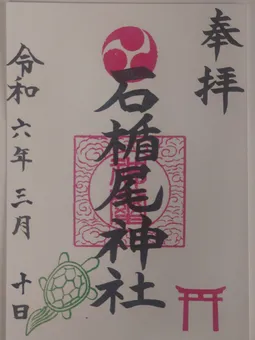 奉拝
石楯尾神社
令和六年三月十日